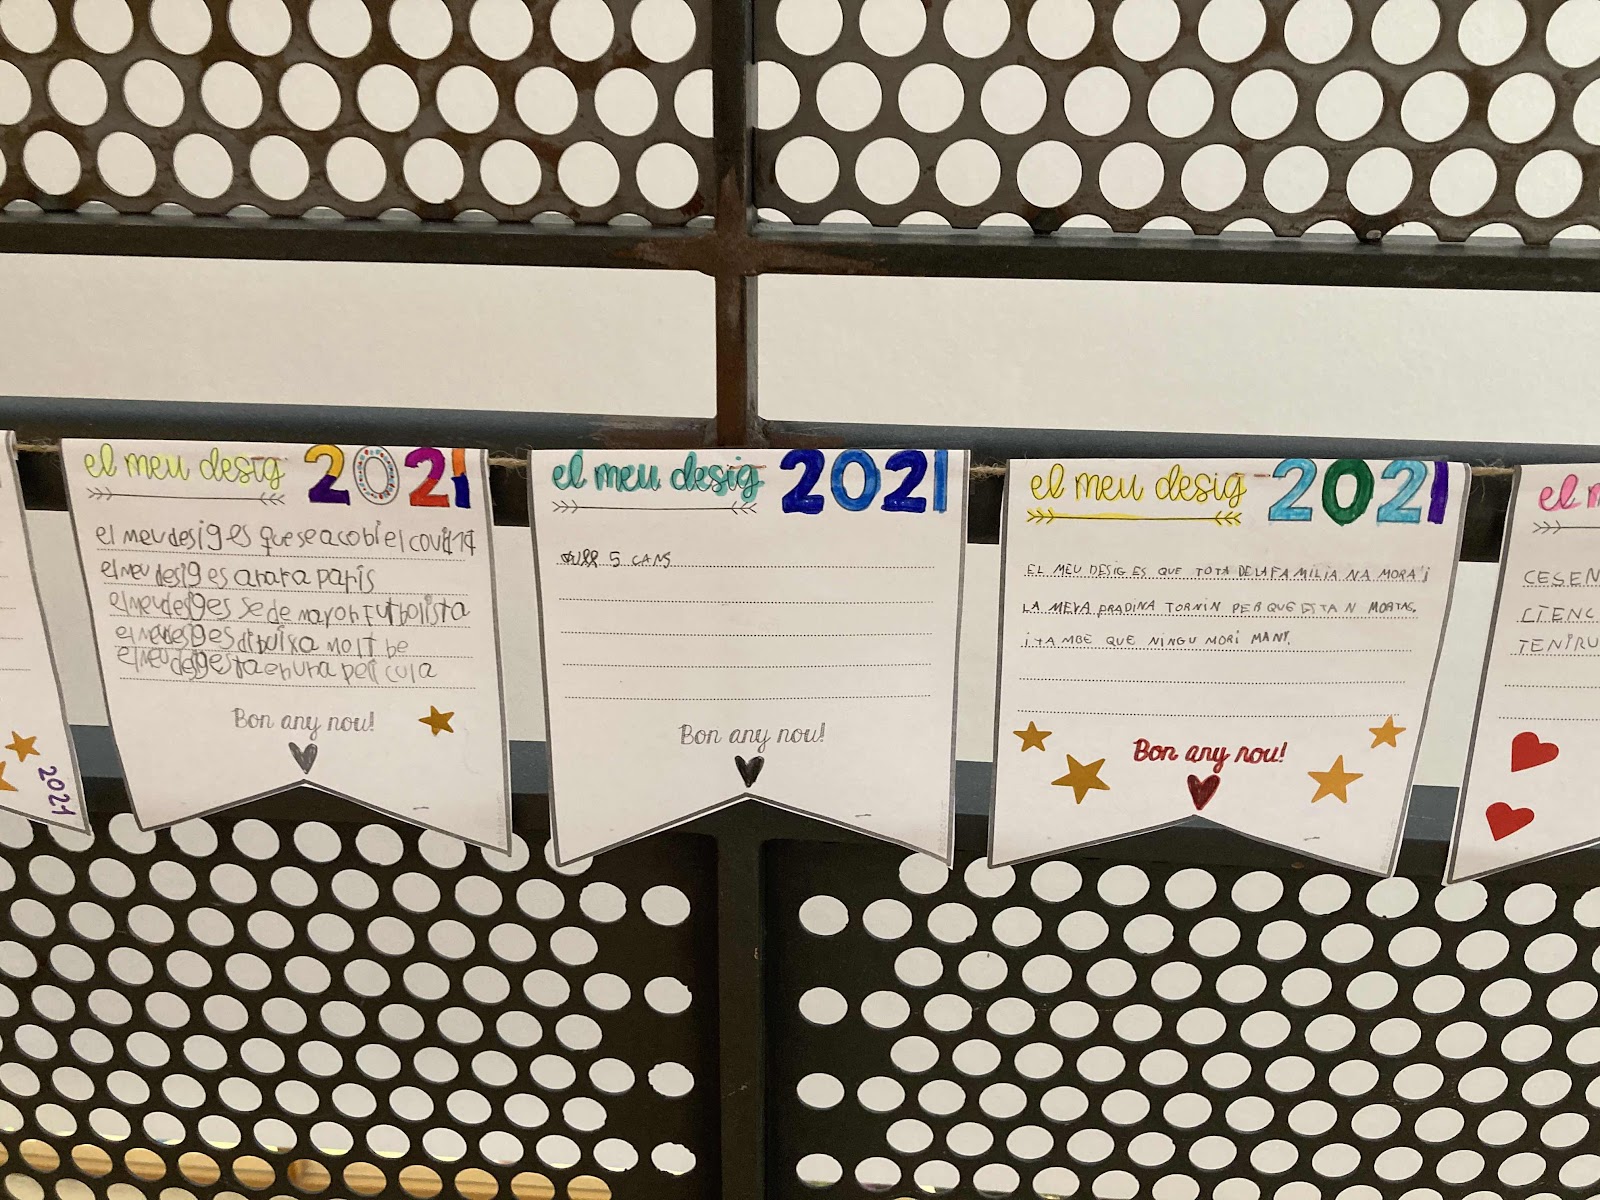 2021
el meu desig 2021
el meu desig es que se acobi el covid19
el meu desig es anar a paris
el meu desig es se de mayor futbolista
el meu desig es dibuixa molt be
el meu desig es ta en una pel icula
Bon any nou!
el meu desig 2021
5 CANS
Bon any nou!
el meu desig 2021
EL MEU DESIG ES QUE TOTA DE LA FAMILIA NA MORA I
LA MEVA PRADINA TORNIN PER QUE ESTA N MORTAS.
I TAMBE QUE NINGU MORI MANI.
Bon any nou!
el m
CESEN
CIENC
TENIRU